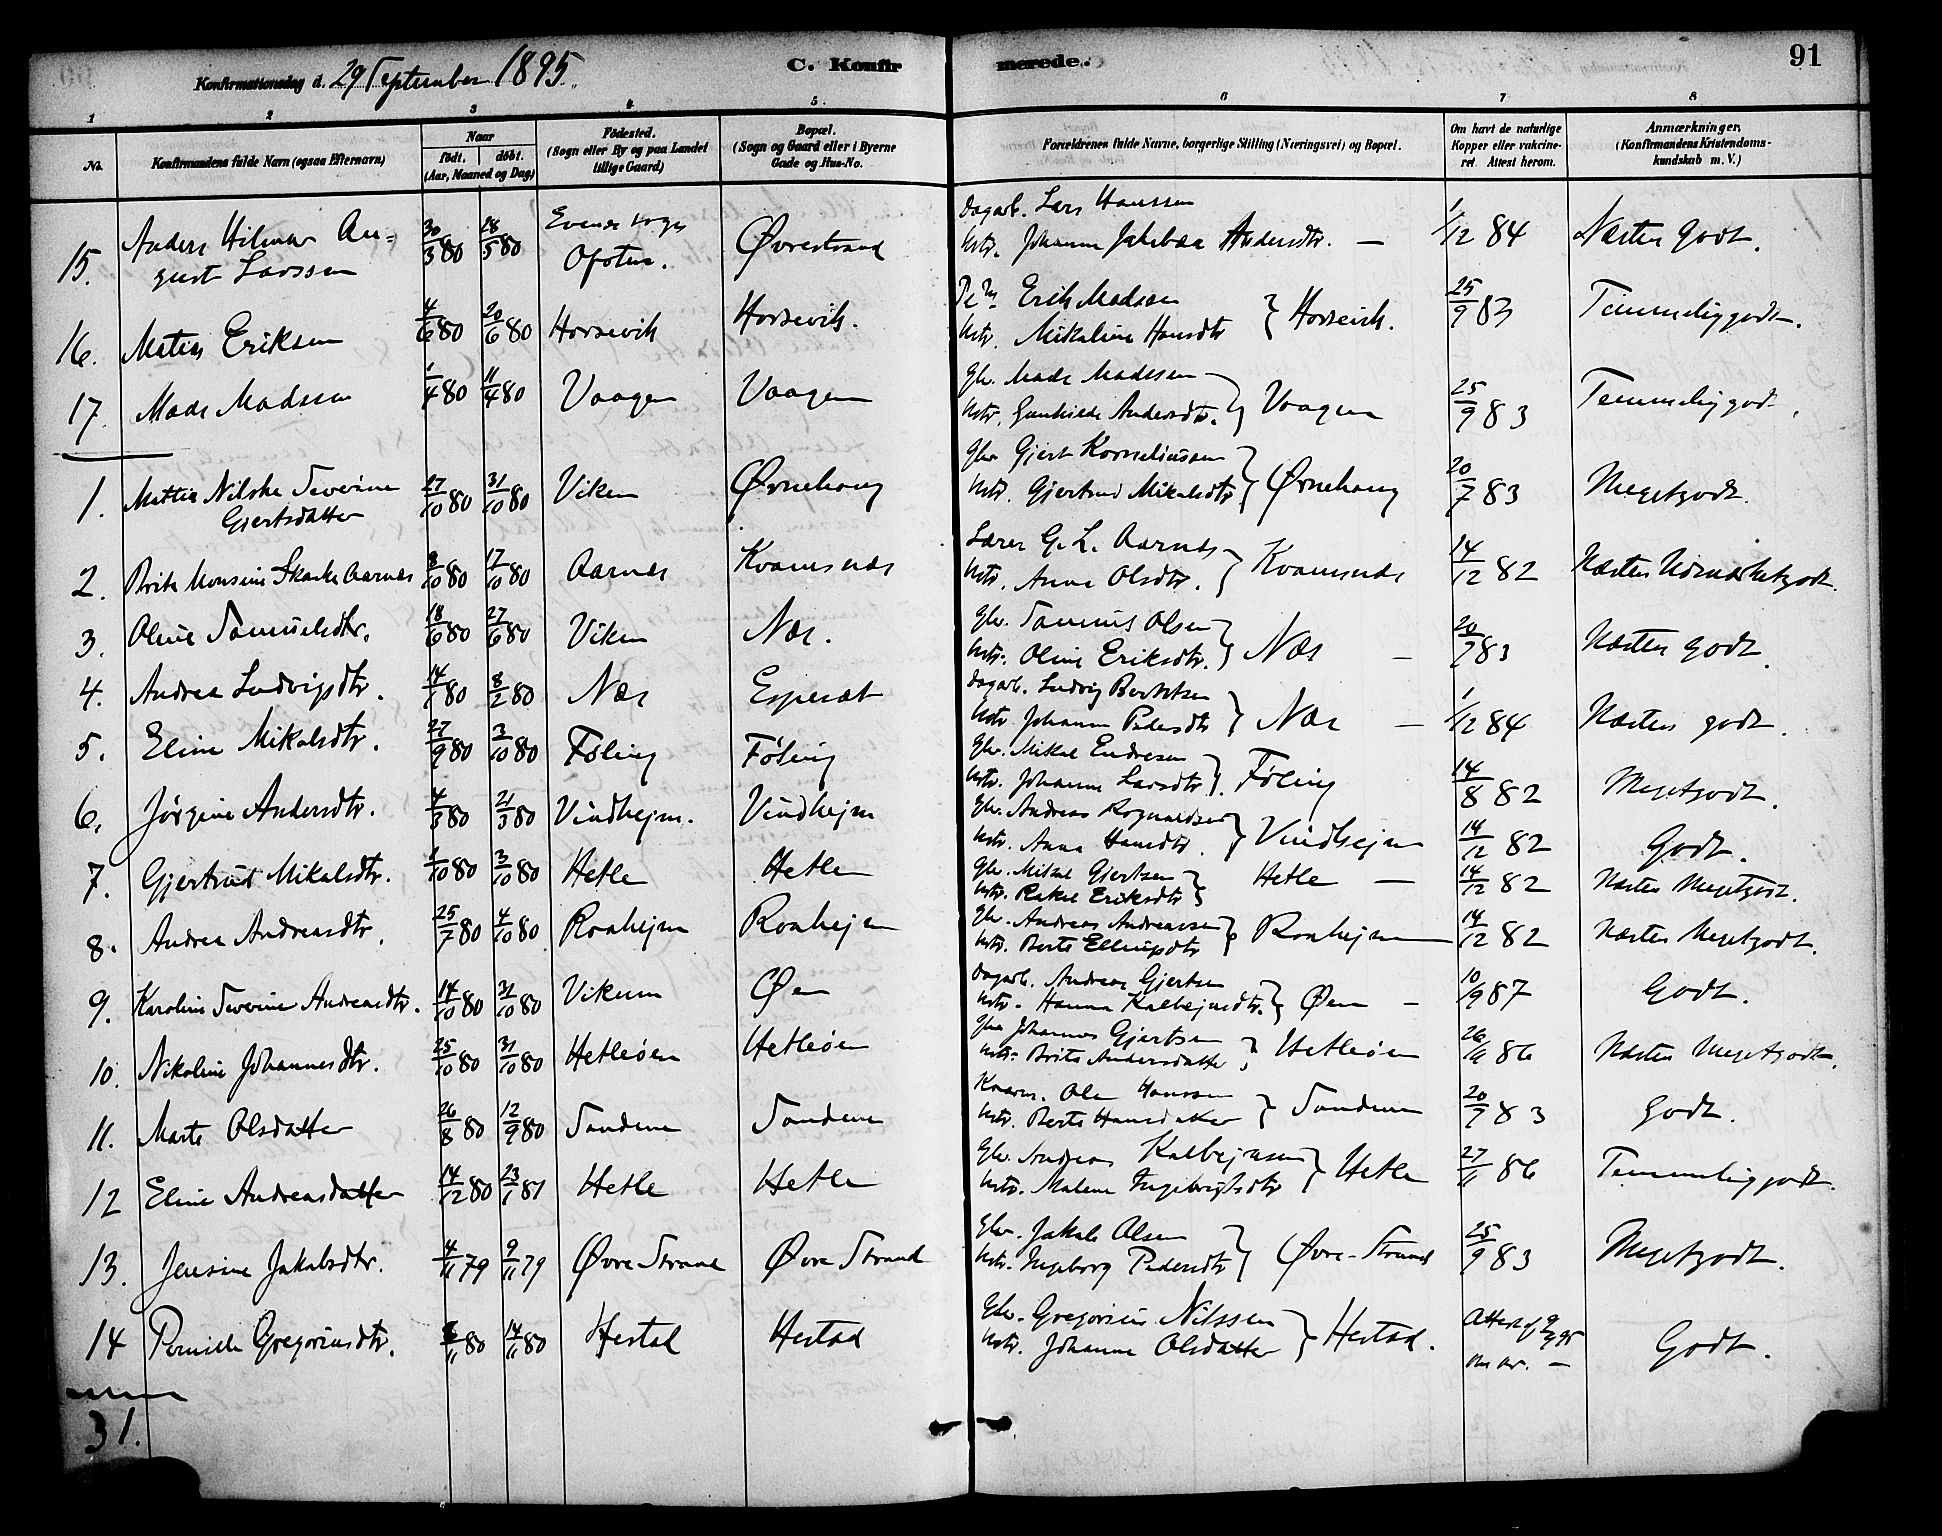 91
Konfirmationsdag d. 29 September 1895.
C. Konfirmerede.
1 2 3 4 5 6 7 8
No. Konfirmandens fulde Navn (ogsaa Efternavn) Naar født. døbt. (Aar, Maaned og Dag) Fødested. (Sogn eller By og paa Landet tillige Gaard) Bopæl. (Sogn og Gaard eller i Byerne Gade og Hus-No. Forældrenes fulde Navne, borgerlige Stilling (Næringsvei) og Bopæl. Om havt de naturlige Kopper eller vakcineret. Attest herom. Anmærkninger. (Konfirmandens Kristendomskundskab m. V.)
15. Anders Hilmar August Larssen 30/3 80 28/5 80 Ofoten. Øvrestrand Dagarb. Lars Hanssen Ustr. Johanna Jakobæa Andersdtr. — 1/12 84 Næsten godt.
16. Matias Eriksen 4/6 80 20/6 80 Horsevik Horsevik. Erik Madsen Ustr. Mikaline Hansdtr } Horsevik. 25/9 83 Temmelig godt.
17. Mads Madssen 1/4 80 11/4 80 Vaagen Vaagen Gbr. Mads Madssen Ustr. Gunhilde Andersdtr. } Vaagen 25/9 83 Temmelig godt.
1. Mattia Nilska Severine Gjertsdatter 27/10 80 31/10 80 Viken Ørnehaug Gbr. Gjert Korneliussen Ustr. Gjertrud Mikalsdtr } Ørnehaug 20/7 83 Megetgodt.
2. Brita Monsine Aarnes 3/10 80 17/10 80 Aarnes Kvamsnæs Lærer G. L. Aarnes Ustr. Anna Olsdtr. } Kvamsnæs 14/12 82 Næsten Udmærketgodt.
3. Oline Samuelsdtr. 18/6 80 27/6 80 Viken Næs. Gbr. Olsen Ustr. Oline Eriksdtr. } Næs — 20/7 83 Næsten godt.
4. Andrea Ludvigsdtr. 14/1 80 8/2 80 Næs Espesæt Dagarb. Ludvig Ustr. Johanna Pedersdtr } Næs — 1/12 84 Næsten godt.
5. Eline Mikalsdtr. 27/9 80 3/10 80 Føling Føling Gbr. Mikal Endresen Ustr. Johanna Larsdtr }. Føling 14/8 82 Megetgodt.
6. Jørgine Andersdtr. 4/3 80 21/3 80 Vindhejm. Vindhejm Gbr. Andreas Rognaldsen Ustr. Anna Hansdtr. } Vindhejm 14/12 82 Godt.
7. Gjertrud Mikalsdtr. 1/10 80 3/10 80 Hetle Hetle Gbr. Mikal Gjertsen Ustr. Rakel Eriksdtr } Hetle — 14/12 82 Næsten Megetgodt.
8. Andrea Andreasdtr. 25/7 80 4/10 80 Ronhejm Ronhejm Gbr. Andreas Andreassen Ustr. Berte Ellingsdtr } Ronhejm 14/12 82 Næsten Megetgodt.
9. Karoline Severine Andreasdtr. 14/10 80 31/10 80 Vikum Øen Dagarb. Andreas Gjertsen Ustr. Hanna Kolbejnsdtr. } Øen — 10/9 87 Godt.
10. Nikoline Johannesdtr. 25/10 80 31/10 80 Hetleøen Hetleøen Gbr. Johannes Gjertsen Ustr. Brita Andersdatter } Hetleøen 86 Næsten Megetgodt.
11. Marta Olsdatter 26/8 80 12/9 80 Sandene Sandene Ole Hanssen Ustr. Berte Hansdatter } Sandene 20/7 83 Godt.
12 Eline Andreasdatter 14/12 80 23/1 81 Hetle Hetle Gbr. Andreas Kolbejnsen Ustr. Malene Ingebrigtsdtr } Hetle 27/11 86 Temmelig godt.
13. Jensine Jakobsdtr. 4/11 79 9/11 79 Øvre Strand Øvre Strand Gbr. Jakob Olsen Ustr. Ingeborg Pedersdtr } Øvre-Strand 25/9 83 Megetgodt.
14 Pernille Gregoriusdtr. 80 14/11 80 Hestad Hestad Gbr. Gregorius Nilssen Ustr. Johanne Olsdatter } Hestad. Attest af 95 Godt.
31.